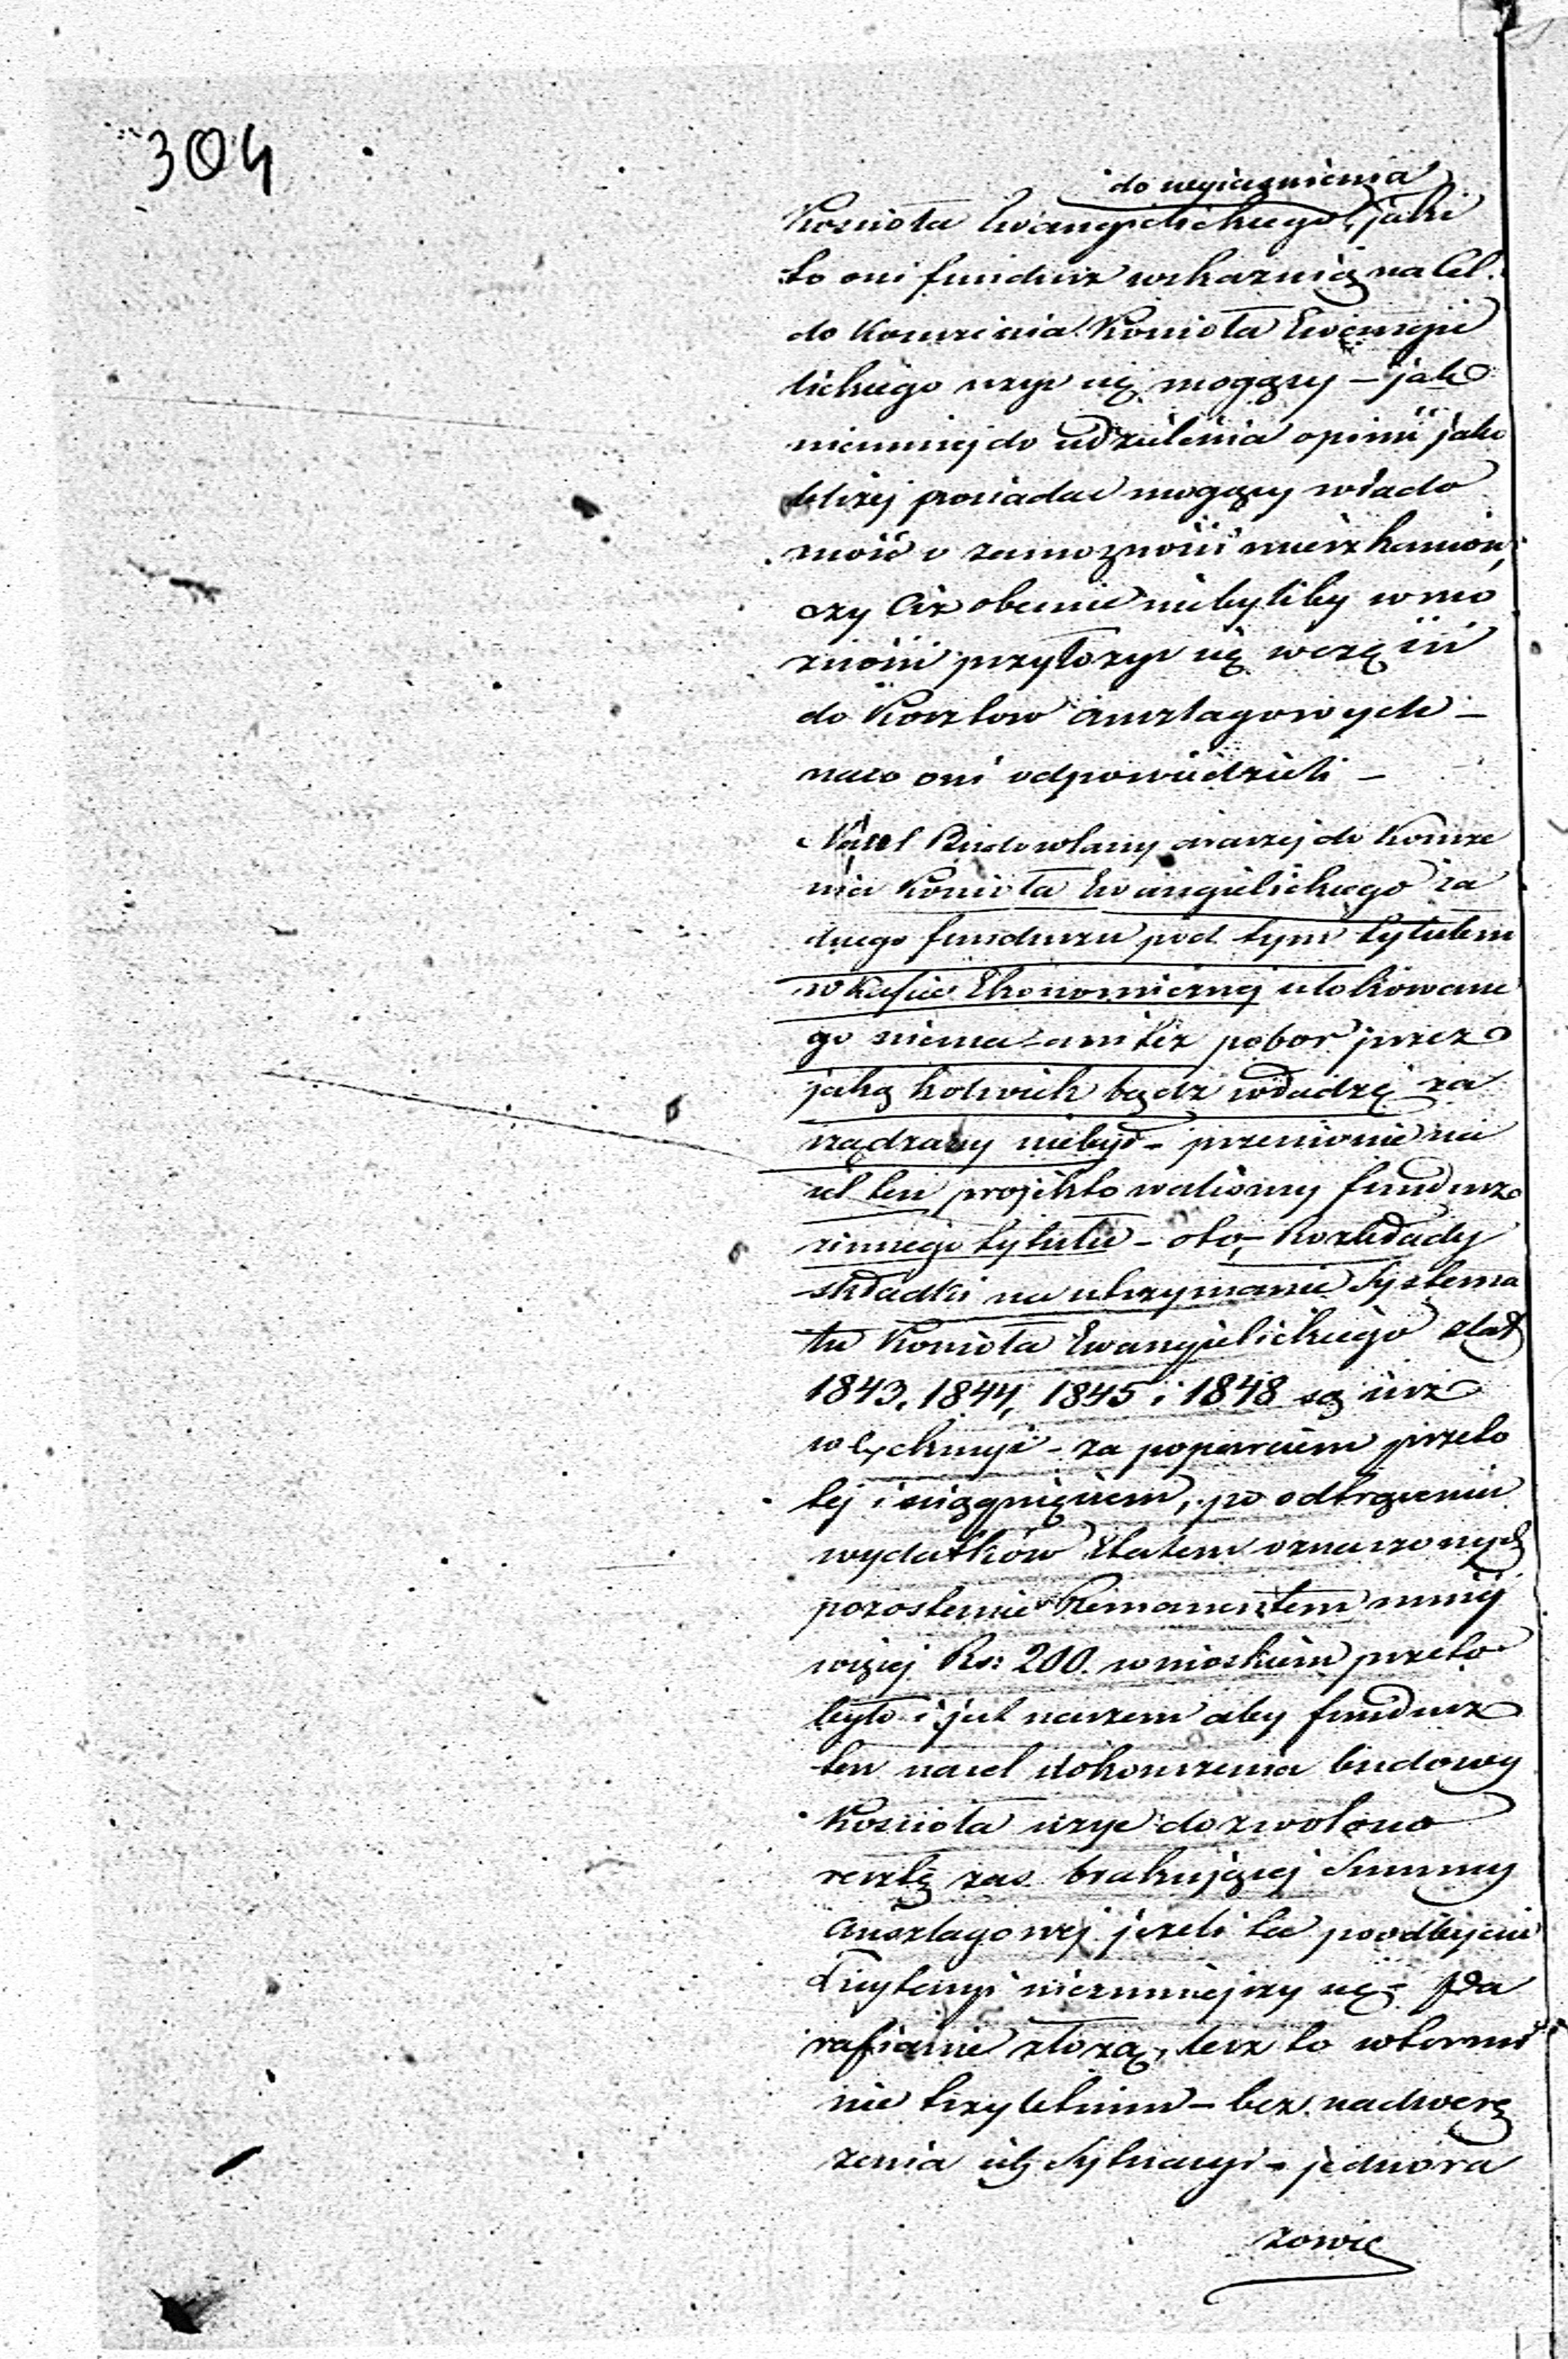 304
do wyjaśnienia
Kościoła Ewangelickiego, jaki
to oni fundusz wskaznią na Cel
do Konczenia Kościoła Ewangie
lickiego uzyc się mogący – jako
niemniej do udzielenia opinii jako
bliżej posiadac mogący wiado
mość o zamozności mieszkancow,
czy Ciz obecnie niebyliby w mo
zności przyłozyc się wczęści
do Kosztow anszlagowych –
naco oni odpowiedzieli –
Nacel Budowlany araczej do Koncze
nia Kościoła Ewangielickiego ża
dnego funduszu pod tym tytułem
w Kassie Ekonomicznej ulokowane
go niema – ani też pobor przez
jaką kolwiek bądz władzę za
rządzany niebył – przeniośnie na
cel ten projektowaliśmy fundusz
zinnego tytułu – oto, Rozkłady
składki na utrzymanie Systema
tu Kościoła Ewangielickiego z lat
1843, 1844, 1845 i 1848 są iesz
w – za poparciem przeto
tej i sciągnięciem, po odtrąceniu
wydatków Etatem oznaczonych
pozostanie Remanentem mniej
więcej Rs: 200. wnioskiem przeto
było i jest naszem aby fundusz
ten nacel dokonczenia budowy
Kościoła uzyc dozwolono
resztę zas brakującej Summy
Anszlagowej jezeli ta poodbyciu
Licytacyi niezmniejszy się – Pa
rafianie złozą, lecz to wtermi
nie trzyletnim – bez nadwerę
zenia ich Sytuacyi – jednora
zowie